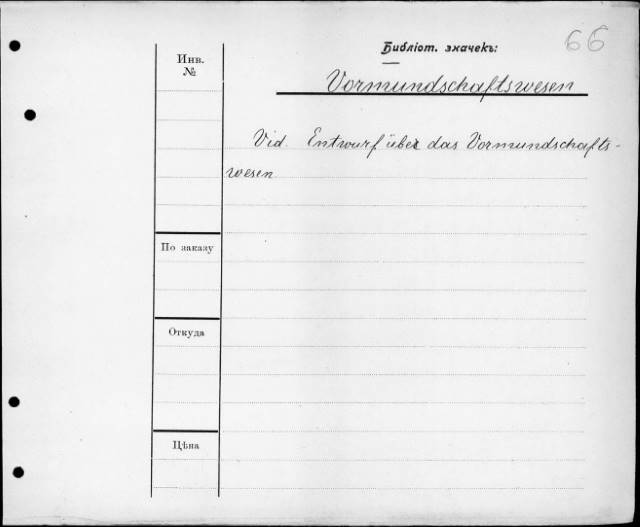 66
Библіот. значекъ:
Инв.
№
Vormundschaftswesen
Vid. Entwurf über das Vormundschafts-
wesen
По заказу
Откуда
Цѣна